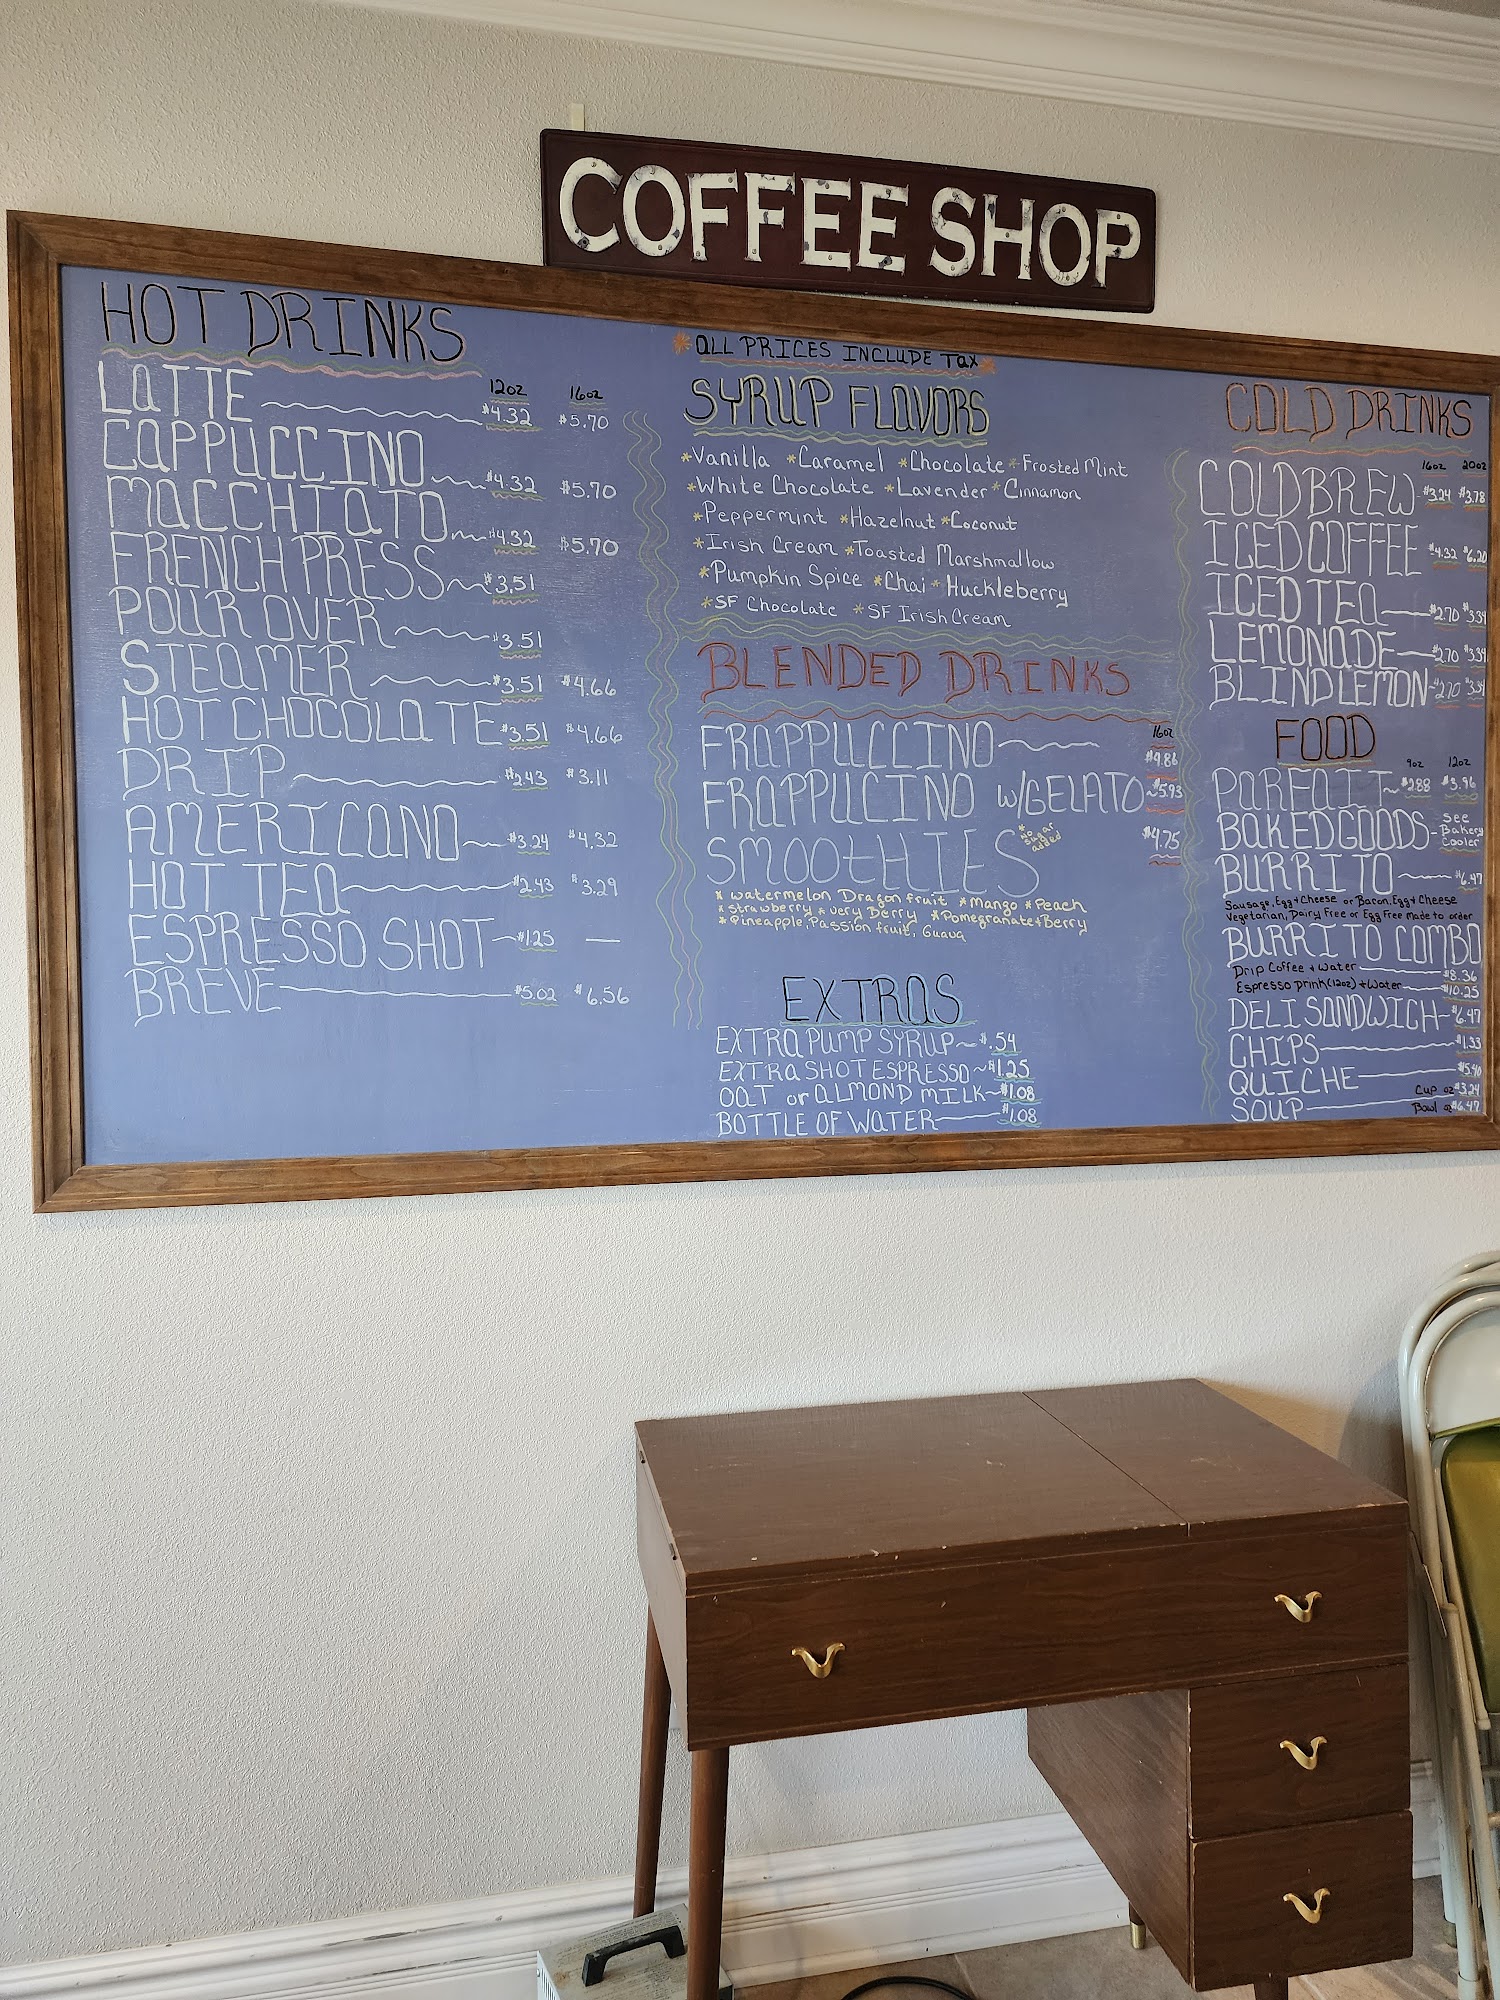 COFFEE SHOP
HOT DRINKS
12oz 16oz
LATTE $4.32 $5.70
CAPPUCCINO $4.32 $5.70
MACCHIATO $4.32 $5.70
FRENCH PRESS $3.51
POUR OVER $3.51
STEAMER $3.51 $4.66
HOT CHOCOLATE $3.51 $4.66
DRIP $2.43 $3.11
AMERICANO $3.24 $4.32
HOT TEA $2.43 $3.29
ESPRESSO SHOT $1.25 —
BREVE $5.02 $6.56
*ALL PRICES INCLUDE TAX*
SYRUP FLAVORS
*Vanilla *Caramel *Chocolate *Frosted Mint
*White Chocolate *Lavender *Cinnamon
*Peppermint *Hazelnut *Coconut
*Irish Cream *Toasted Marshmallow
*Pumpkin Spice *Chai *Huckleberry
*SF Chocolate *SF Irish Cream
BLENDED DRINKS
16oz
FRAPPUCCINO $4.86
FRAPPUCINO w/GELATO $5.93
SMOOTHIES *No Sugar added $4.75
* watermelon Dragon fruit *Mango *Peach
* strawberry *very Berry *Pomegranate+Berry
* Pineapple, Passion fruit, Guava
EXTRAS
EXTRA PUMP SYRUP $.54
EXTRA SHOT ESPRESSO $1.25
OAT or ALMOND MILK $1.08
BOTTLE OF WATER $1.08
COLD DRINKS
16oz 20oz
COLD BREW $3.24 $3.78
ICED COFFEE $4.32 $6.20
ICED TEA $2.70 $3.39
LEMONADE $2.70 $3.39
BLIND LEMON $2.70 $3.39
FOOD
9oz 12oz
PARFAIT $2.88 $3.96
BAKED GOODS - see Bakery Cooler
BURRITO $6.47
Sausage, Egg + Cheese or Bacon, Egg + Cheese
Vegetarian, Dairy Free or Egg Free made to order
BURRITO COMBO
Drip Coffee + Water $8.36
Espresso Drink (12oz) + Water $10.25
DELI SANDWICH $6.47
CHIPS $1.33
QUICHE $5.40
SOUP Cup oz $3.24
Bowl oz $6.47